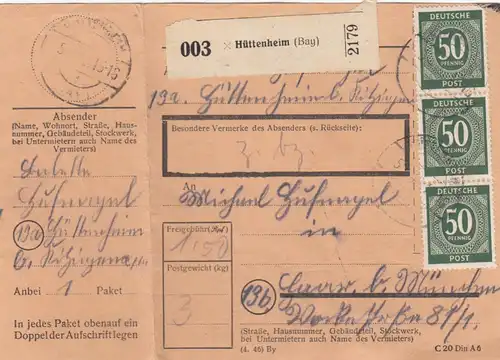 003 Hüttenheim (Bay) 2179
DEUTSCHE
50
PFENNIG
POST
DEUTSCHE
50
PFENNIG
POST
DEUTSCHE
50
PFENNIG
POST
Absender
(Name, Wohnort, Straße, Haus-
nummer, Gebäudeteil, Stockwerk,
bei Untermietern auch Name des
Vermieters)
Hufnagel
13a Hüttenheim
b. Kitzingen
Anbei 1 Paket
In jedes Paket obenauf ein
Doppel der Aufschrift legen
13a Hüttenheim b. Kitzingen
Besondere Vermerke des Absenders (s. Rückseite):
An
Michael Hufnagel
in
Freigebühr (RM)
1,50
Postgewicht (kg)
3
13b b. München
(Straße, Hausnummer, Gebäudeteil, Stockwerk,
bei Untermietern auch Name des Vermieters)
(4. 46) By
C 20 Din A 6